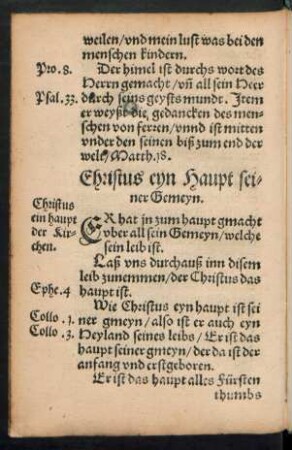 weilen/vnd mein lust was bei den
menschen kindern.
Pro. 8. Der himel ist durchs wort des
Herrn gemacht/vñ all sein Heer
Psal. 33. durch seins geysts mundt. Item
er weyßt die gedancken des men-
schen von ferren/vnnd ist mitten
vnder den seinen biß zum end der
welt/Matth. 18.
Christus eyn Haupt sei-
ner Gemeyn.
Christus
ein haupt
der Kir-
chen.
ER hat jn zum haupt gmacht
vber all sein Gemeyn/welche
sein leib ist.
Laß vns durchauß inn disem
leib zunemmen/der Christus das
Ephe. 4 haupt ist.
Wie Christus eyn haupt ist sei
Collo. 1. ner gmeyn/also ist er auch eyn
Collo. 3. Heyland seines leibs/Er ist das
haupt seiner gmeyn/der da ist der
anfang vnd erstgeboren.
Er ist das haupt alles Fürsten
thumbs